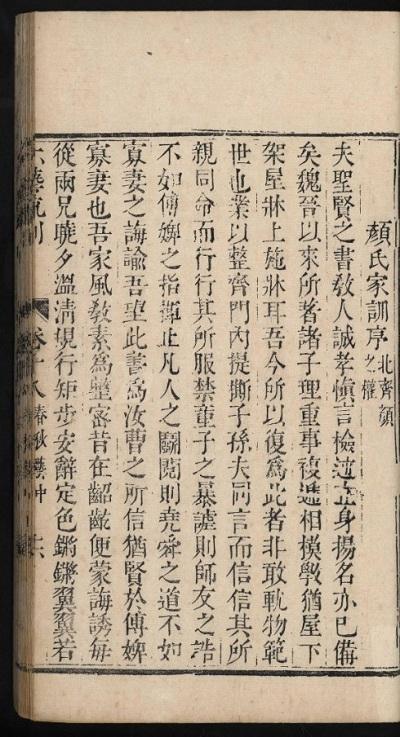 顏氏家訓序 北齊顏之推
夫聖賢之書敎人誠孝愼言檢迹立身揚名亦已備
矣魏晉以來所著諸子理重事複遞相模斆猶屋下
架屋牀上施牀耳吾今所以復爲此者非敢軌物範
世也業以整齊門內提撕子孫夫同言而信信其所
親同命而行行其所服禁童子之暴謔則師友之誥
不如傅婢之指揮止凡人之鬬鬩則堯舜之道不如
寡妻之誨諭吾望此書爲汝曹之所信猶賢於傅婢
寡妻也吾家風敎素爲整密昔在齠齔便蒙誨誘每
從兩兄曉夕溫凊規行矩步安辭定色鏘鏘翼翼若
卷十八